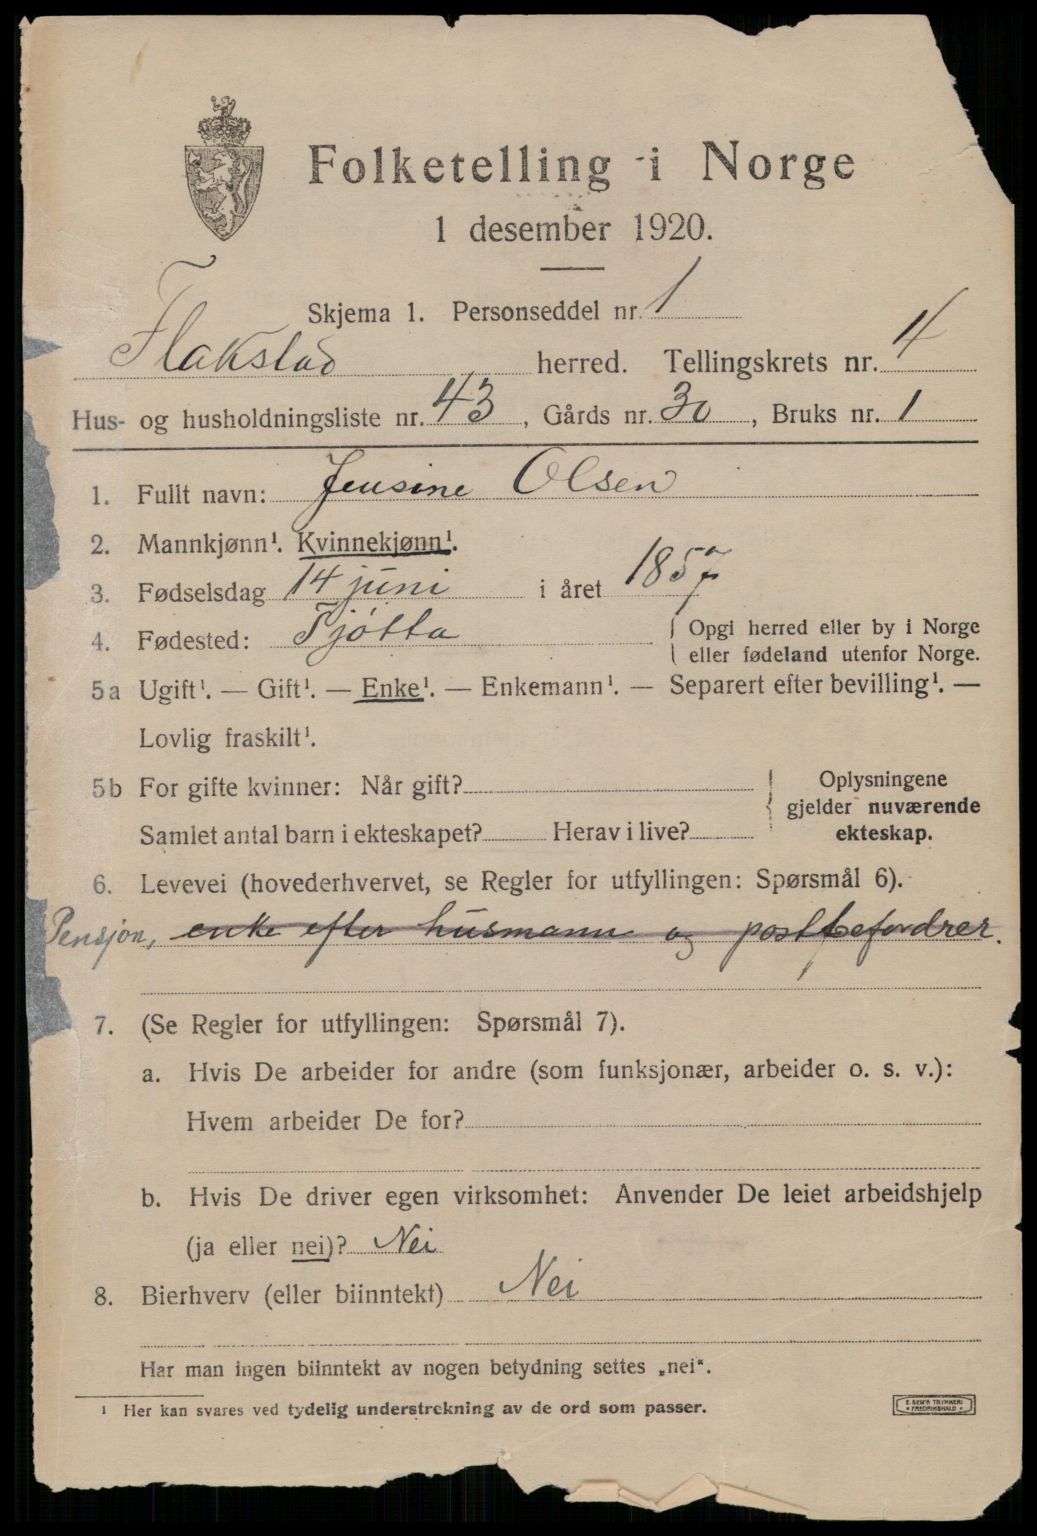 Folketelling i Norge
1 desember 1920.
Skjema 1. Personseddel nr. 1
Flakstad herred. Tellingskrets nr. 4
Hus- og husholdningsliste nr. 43, Gårds nr. 30, Bruks nr. 1
1. Fullt navn: Jensine Olsen
2. Mannkjønn¹. Kvinnekjønn¹.
3. Fødselsdag 14 juni i året 1857
4. Fødested: Tjøtta { Opgi herred eller by i Norge
eller fødeland utenfor Norge.
5a Ugift¹. — Gift¹. — Enke¹. — Enkemann¹. — Separert efter bevilling¹. —
Lovlig fraskilt¹.
5b For gifte kvinner: Når gift? Oplysningene
gjelder nuværende
Samlet antal barn i ekteskapet? Herav i live? ekteskap.
6. Levevei (hovederhvervet, se Regler for utfyllingen: Spørsmål 6).
Pensjon, enke efter husmann og postbefordrer.
7. (Se Regler for utfyllingen: Spørsmål 7).
a. Hvis De arbeider for andre (som funksjonær, arbeider o. s. v.):
Hvem arbeider De for?
b. Hvis De driver egen virksomhet: Anvender De leiet arbeidshjelp
(ja eller nei)? Nei
8. Bierhverv (eller biinntekt) Nei
Har man ingen biinntekt av nogen betydning settes „nei“.
¹ Her kan svares ved tydelig understrekning av de ord som passer.
E. SEM'S TRYKKERI
FREDRIKSHALD